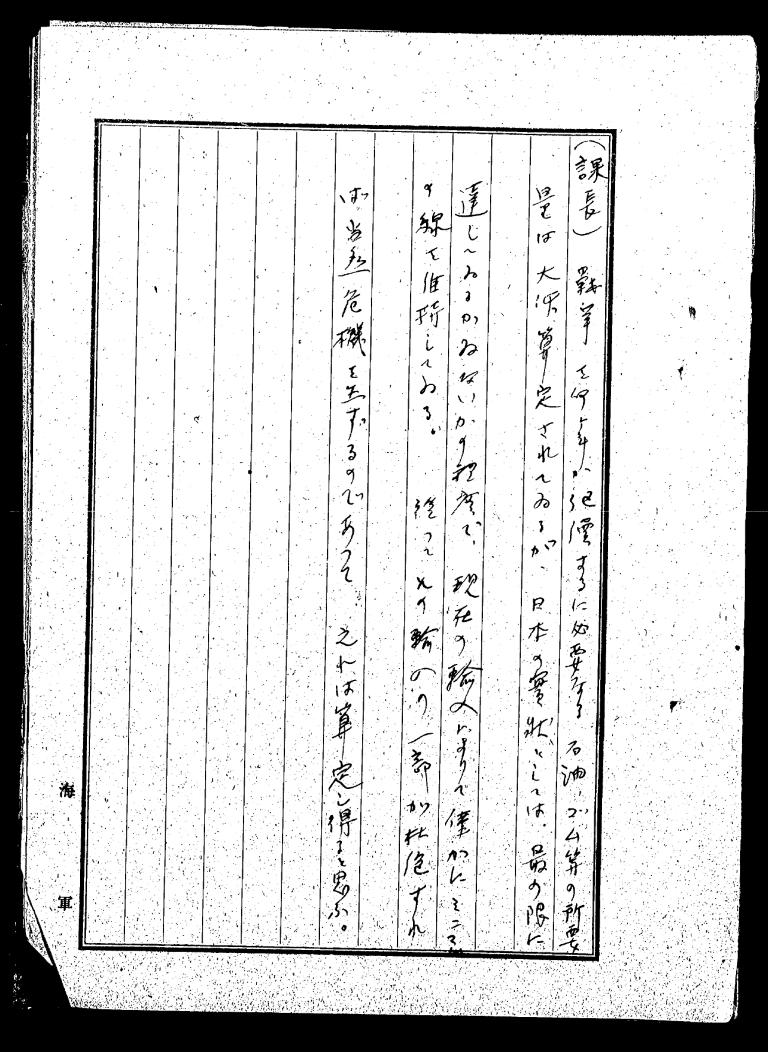 (課長) 戰爭を何年か繼續するに必要なる石油、ゴム等の所要
量は大体算定されてゐるが、日本の實狀としては、最少限に
達してゐるかゐないかの程度で、現在の輸入によりて僅かにミニマム
の線を維持してゐる。 從つてその輸入の一部が杜絶すれ
ば当然危機を生ずるのであつて 之れは算定し得ると思ふ。
海軍